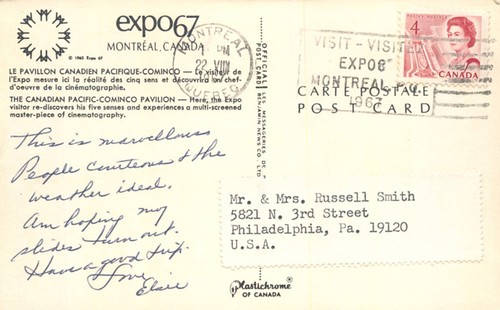 expo67
MONTRÉAL, CANADA
© 1963 Expo 67
LE PAVILLON CANADIEN PACIFIQUE-COMINCO — Le visiteur de
l'Expo mesure ici la réalité des cinq sens et découvrira un chef-
d'oeuvre de la cinématographie.
THE CANADIAN PACIFIC-COMINCO PAVILION — Here, the Expo
visitor re-discovers his five senses and experiences a multi-screened
master-piece of cinematography.
This is marvellous
People courteous & the
weather ideal.
Am hoping my
slides turn out.
Have a good trip.
Love
Elsie
OFFICIAL POST CARD
MONTREAL
PM
22 VIII
QUEBEC
VISIT - VISITEZ
EXPO67
MONTREAL P.Q.
1967
4
CANADA
CARTE POSTALE
POST CARD
Mr. & Mrs. Russell Smith
5821 N. 3rd Street
Philadelphia, Pa. 19120
U.S.A.
Plastichrome
OF CANADA